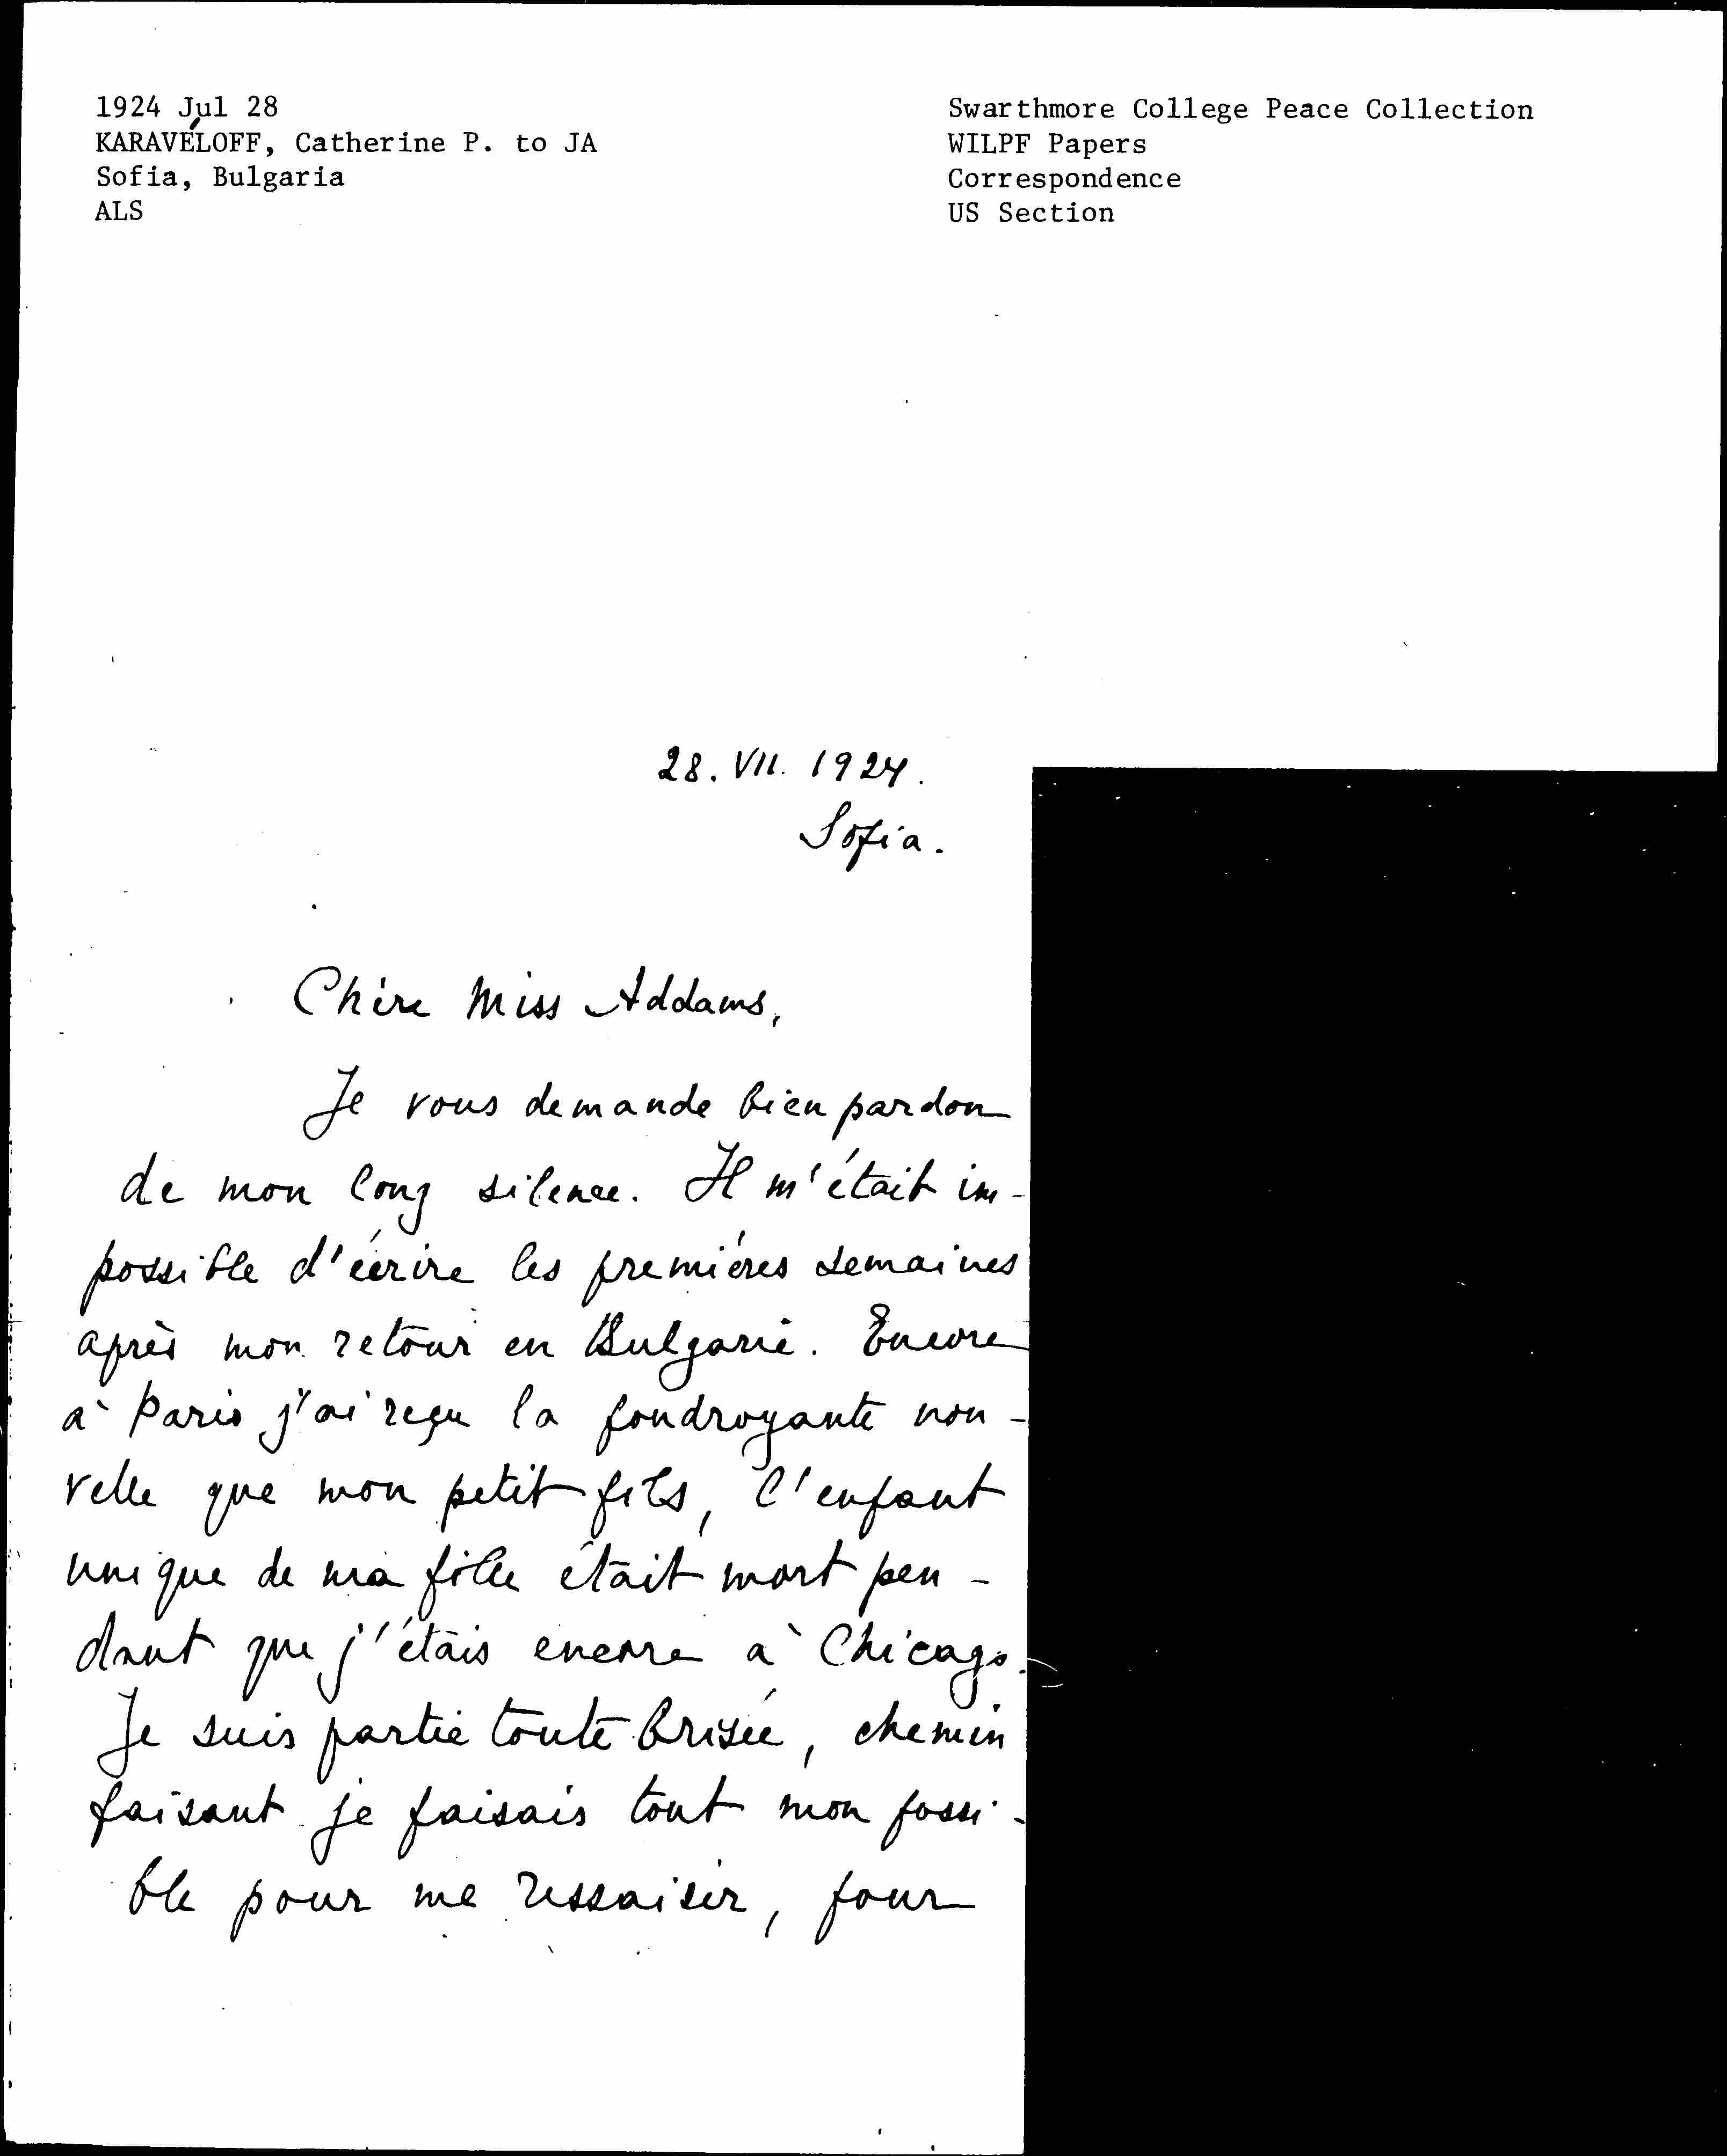 1924 Jul 28
KARAVÉLOFF, Catherine P. to JA
Sofia, Bulgaria
ALS
Swarthmore College Peace Collection
WILPF Papers
Correspondence
US Section
28. VII. 1924.
Sofia.
Chère Miss Addams,
Je vous demande bien pardon
de mon long silence. Il m'était im-
possible d'écrire les premières semaines
après mon retour en Bulgarie. Encore
à Paris j'ai reçu la foudroyante nou-
velle que mon petit fils, l'enfant
unique de ma fille était mort pen-
dant que j'étais encore à Chicago.
Je suis partie toute brisée, chemin
faisant je faisais tout mon possi-
ble pour me ressaisir, pour